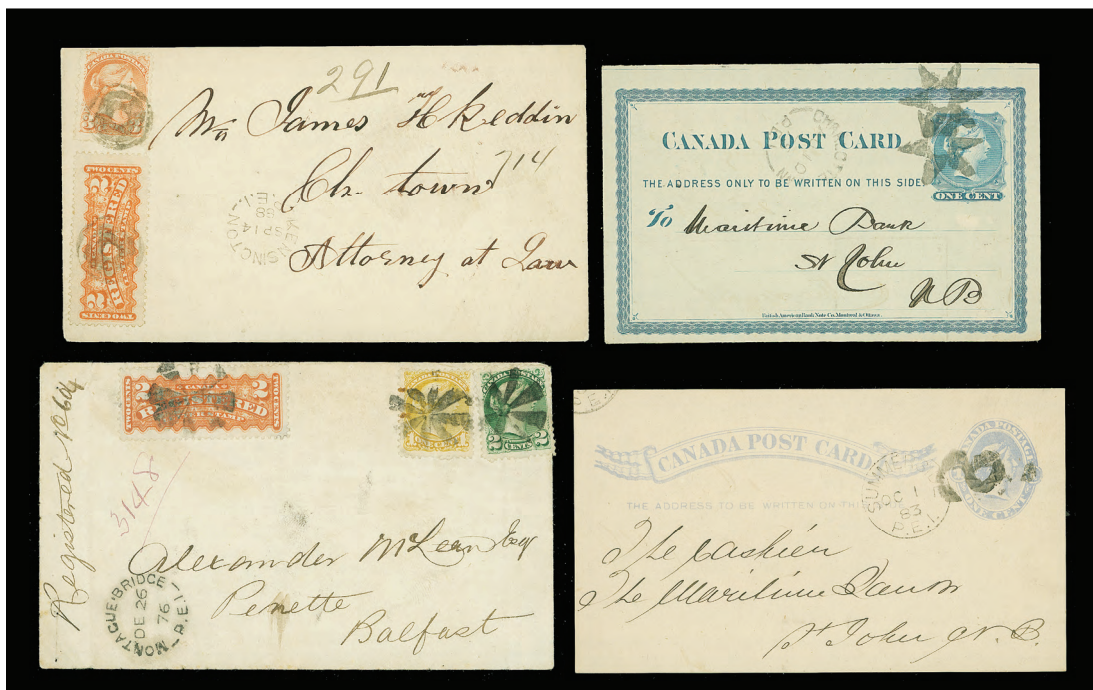 CANADA POSTAGE
291
Mr James H Keddin
Ch. town
714
Attorney at Law
KENSINGTON
SP 14
88
P.E.I.
TWO CENTS
2 REGISTERED 2
TWO CENTS
CANADA POST CARD
THE ADDRESS ONLY TO BE WRITTEN ON THIS SIDE
ONE CENT
To Maritime Bank
St John
N B
British American Bank Note Co. Montreal & Ottawa.
Registered No 604
TWO CENTS
CANADA
2 REGISTERED 2
TWO CENTS
ONE CENT
2 CENTS 2
3148
Alexander McLean Esq
Penette
Belfast
MONTAGUE-BRIDGE
DE 26
76
P.E.I.
CANADA POST CARD
THE ADDRESS TO BE WRITTEN ON THIS
CANADA POSTAGE
ONE CENT
SUMME
OC 1
83
P.E.I.
The Cashier
The Maritime Bank
St John N.B.